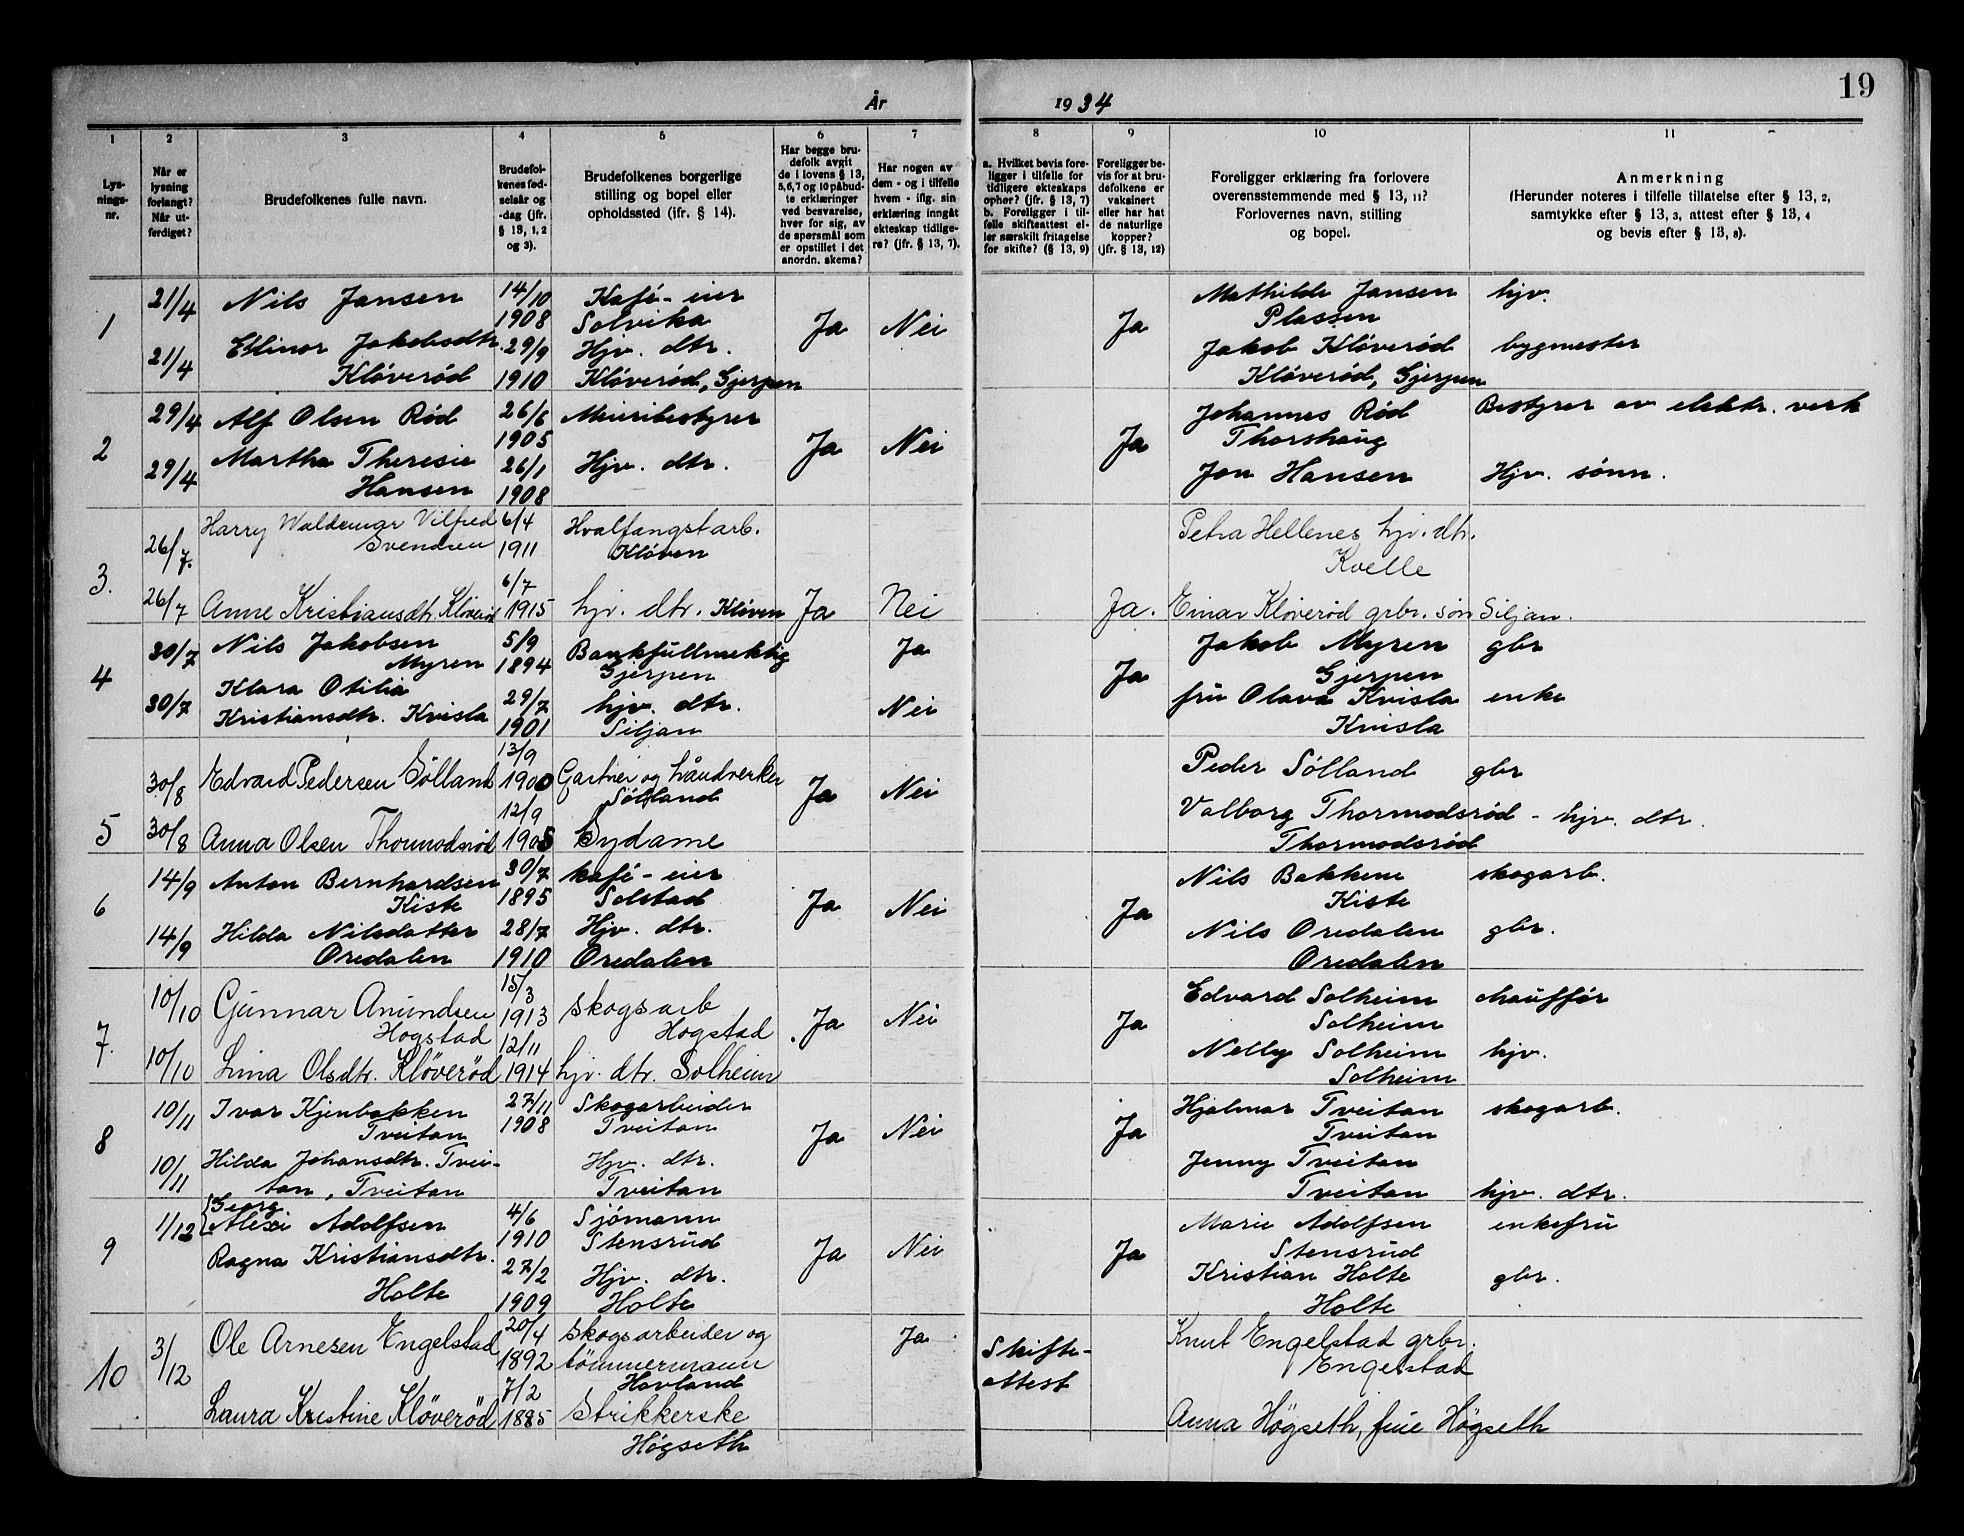 19
År 1934
1 2 3 4 5 6 7 8 9 10 11
Lysnings-nr.
Når er lysning forlangt? Når utferdiget?
Brudefolkenes fulle navn.
Brudefolkenes fødselsår og -dag (jfr. § 13, 1, 2 og 3).
Brudefolkenes borgerlige stilling og bopel eller opholdssted (jfr. § 14).
Har begge brudefolk avgitt de i lovens § 13, 5, 6, 7 og 10 påbudte erklæringer ved besvarelse, hver for sig, av de spørsmål som er opstillet i det anordn. skema?
Har nogen av dem - og i tilfelle hvem - iflg. sin erklæring inngått ekteskap tidligere? (jfr. § 13, 7).
a. Hvilket bevis foreligger i tilfelle for tidligere ekteskaps ophør? (jfr. § 13, 7)
b. Foreligger i tilfelle skifteattest eller særskilt fritagelse for skifte? (§ 13, 9)
Foreligger bevis for at brudefolkene er vaksinert eller har hat de naturlige kopper? (jfr. § 13, 12)
Foreligger erklæring fra forlovere overensstemmende med § 13, 11? Forlovernes navn, stilling og bopel.
Anmerkning
(Herunder noteres i tilfelle tillatelse efter § 13, 2, samtykke efter § 13, 3, attest efter § 13, 4 og bevis efter § 13, 8).
1 21/4 Nils Jansen 14/10 1908 Kafé-eier Solvika Ja Nei Ja Mathilde Jansen hjv.
Plassen
21/4 Ellinor Jakobsdtr. 29/9 Hjv. dtr. Jakob Kløverød bygmester
Kløverød 1910 Kløverød, Gjerpen Kløverød, Gjerpen
2 29/4 Alf Olsen Rød 26/6 1905 Meieribestyrer Ja Nei Ja Johannes Rød Bestyrer av elektr. verk
Thorshaug
29/4 Martha Theresie 26/1 Hjv. dtr. Jon Hansen Hjv. sønn.
Hansen 1908
3. 26/7. Harry Waldemar Vilfred 6/4 Hvalfangstarb. Petra Hellenes hjv. dtr.
Svendsen 1911 Kløven Kvelle
26/7 Anne Kristiansdtr. Kløverød 6/7 1915 hjv. dtr. Kløven Ja Nei Ja. Einar Kløverød grbr. søn Siljan.
4 30/7 Nils Jakobsen 5/9 Bankfullmektig Ja Ja Jakob Myren gbr
Myren 1894 Gjerpen Gjerpen
30/7 Klara Otilia 29/7 hjv. dtr. Nei fru Olava Kvisla enke
Kristiansdtr. Kvisla 1901 Siljan Kvisla
5 30/8 Edvard Pedersen Sølland 13/9 1900 Gartner og håndverker Ja Nei Peder Sølland gbr
Sølland
30/8 Anna Olsen Thormodsrød 12/9 1905 Sydame Valborg Thormodsrød - hjv. dtr.
Thormodsrød
6 14/9 Anton Bernhardsen 30/7 kafé-eier Ja Nei Ja Nils Bakkene skogarb.
Kiste 1895 Solstad Kiste
14/9 Hilda Nilsdatter 28/7 Hjv. dtr. Nils Oredalen gbr.
Oredalen 1910 Oredalen Oredalen
7. 10/10 Gunnar Amundsen 15/3 1913 skogsarb Ja Nei Ja Edvard Solheim chauffør
Hogstad Hogstad Solheim
10/10 Lina Olsdtr. Kløverød 12/11 1914 hjv. dtr. Solheim Nelly Solheim hjv.
Solheim
8 10/11 Ivar Kjenbakken 27/11 Skogarbeider Ja Nei Ja Hjalmar Tveitan skogarb.
Tveitan 1908 Tveitan Tveitan
10/11 Hilda Johansdtr. Tvei- Hjv. dtr. Jenny Tveitan
tan, Tveitan Tveitan Tveitan hjv. dtr.
9 1/12 Georg
Alexi Adolfsen 4/6 1910 Sjömann Stensrud Ja Nei Ja Marie Adolfsen enkefru
Stensrud
Ragna Kristiansdtr. 27/2 Hjv. dtr. Kristian Holte gbr.
Holte 1909 Holte Holte
10 3/12 Ole Arnesen Engelstad 20/4 1892 skogsarbeider og tömmermann Ja Skifte- Knut Engelstad grbr.
Havland attest Engelstad
Laura Kristine Kløverød 7/2 1885 Strikkerske Anna Högseth, frue Högseth
Högseth